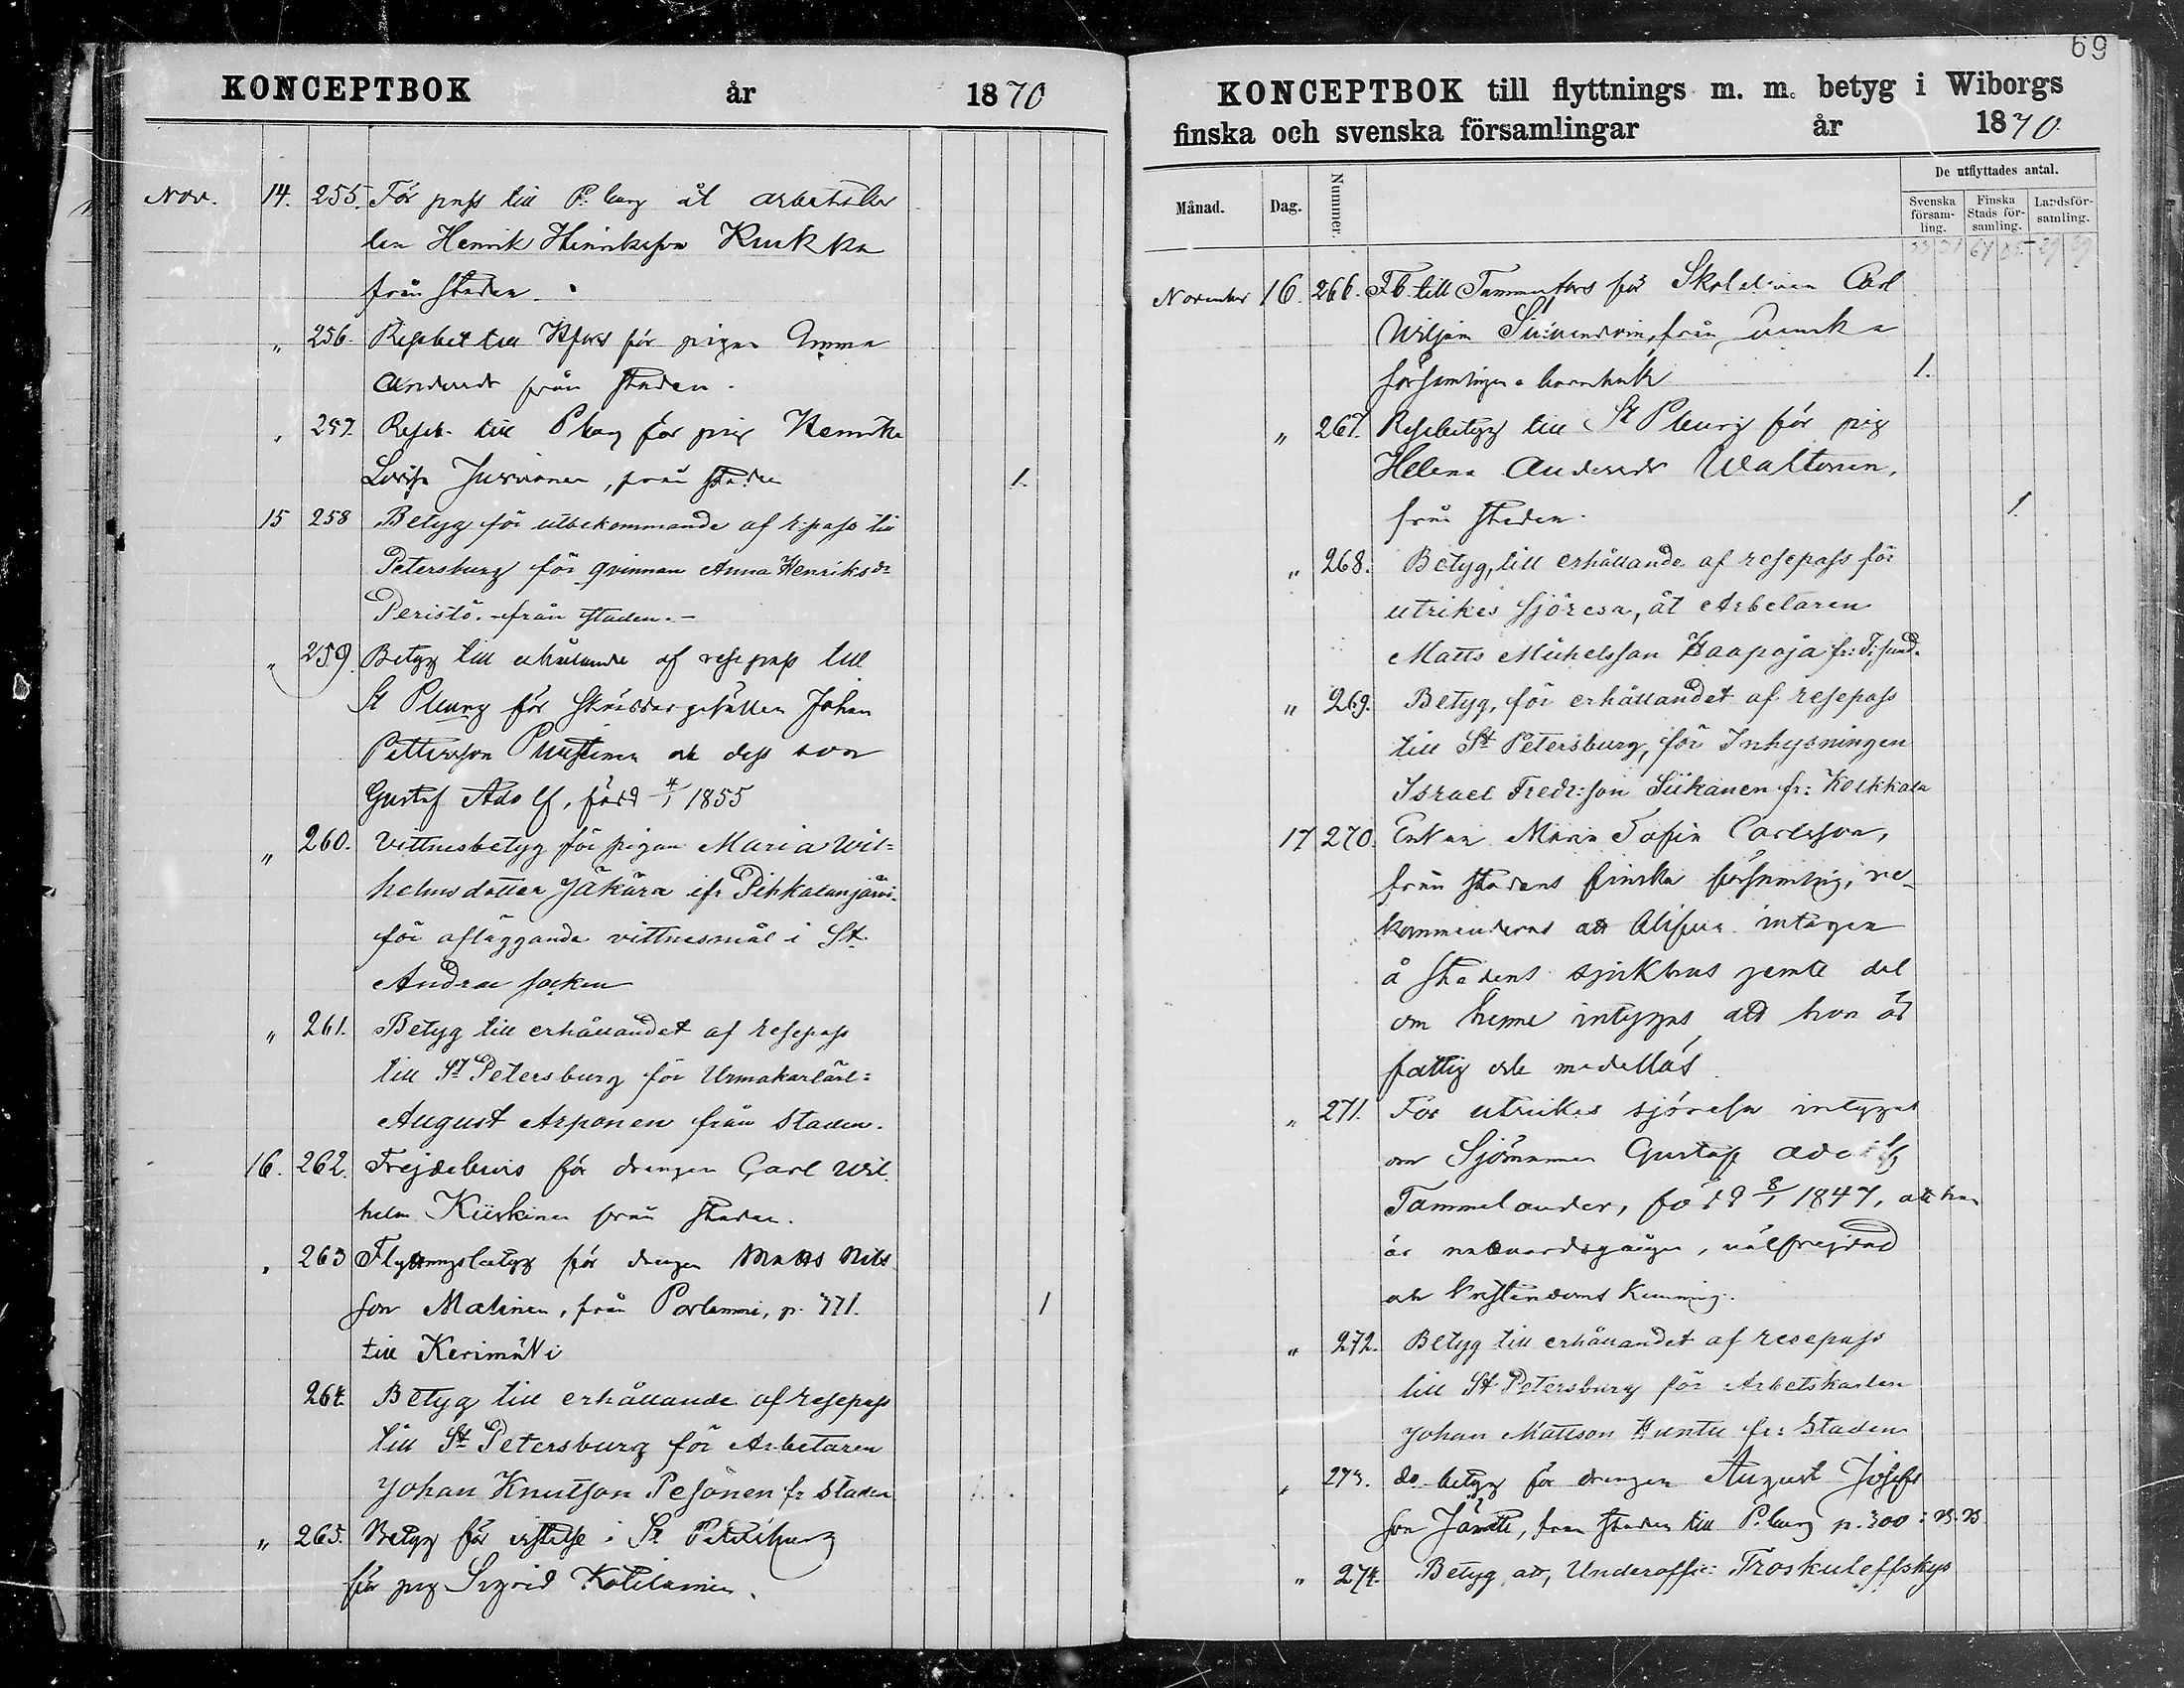 KONCEPTBOK år 1870
Nov. 14. 255. För pass till P.burg åt arbetskar
len Henrik Henriksson Kukka
från staden.
" 256. Resebet till Hfors för pigan Emma
Andersdr från staden.
" 257. Reseb. till Pburg för pig Henrika
Lovisa Jurvanen, från staden 1.
15 258 Betyg för utbekommande af r:pass till
Petersburg för qvinnan Anna Henriksdr
Peristö. från staden.
" 259. Betyg till erhållande af resepass till
St Pburg för skräddargesällen Johan
Pettersson Puustinen och dess son
Gustaf Adolf, född 4/1 1855
" 260. Vittnesbetyg för pigan Maria Wil=
helmsdotter Jäkärä ifr Pihkalanjärvi
för afläggande vittnesmål i St
Andrae socken
" 261. Betyg till erhållandet af resepass
till St Petersburg för Urmakarlärl:
August Arponen från Staden.
16. 262. Frejdebevis för drengen Carl Wil
helm Kiiskinen från staden.
" 263 Flyttningsbetyg för drengen Matts Nils
son Matinen, från Porlammi, p. 771. 1
till Kerimäki
264. Betyg till erhållande af resepass
till St Petersburg för Arbetaren
Johan Knutson Pesonen fr Staden
" 265. Betyg för vistelse i St Petersburg
för pig Sigrid Kotilainen.
69
KONCEPTBOK till flyttnings m. m. betyg i Wiborgs
finska och svenska församlingar år 1870.
Månad. Dag. Nummer. De utflyttades antal.
Svenska församling. Finska Stads församling. Landsförsamling.
November 16. 266. Fb. till Tammerfors för Skoleleven Carl
Wiljam , från svenska
församlingens barnbok 1.
" 267. Resebetyg till St Pburg för pig
Helena Andersdr Waltonen,
från staden. 1.
" 268. Betyg, till erhållande af resepass för
utrikes sjöresa, åt Arbetaren
Matts Michelsson Haapoja fr: T:sund.
" 269. Betyg, för erhållandet af resepass
till St Petersburg, för Inhysningen
Israel Fredr:son Siikanen fr: Kolkkala
17 270. Enkan Maria Sofia Carlsson,
från stadens finska församling, re-
kommenderas att blifva intagen
å stadens sjukhus jemte det
om henne intygas att hon är
fattig och medellös.
" 271. För utrikes sjöresa intygas
om Sjömannen Gustaf Adolf
Tammelander, född 8/1 1847, att han
är nattvardsgången, välfrejdad
och kristendoms kunnig.
" 272. Betyg till erhållandet af resepass
till St Petersburg för Arbetskarlen
Johan Mattson Huntu fr: Staden
" 273. do betyg för drengen August Josefs
son Jäntti, från staden till P.burg p. 300:
" 274. Betyg, att, Underoffic: Troskuleffskys